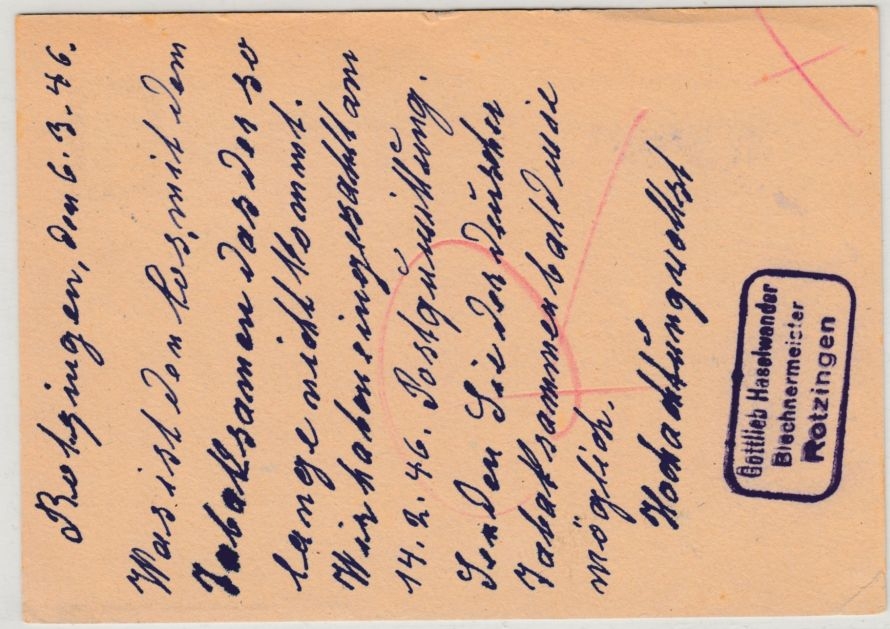 Rotzingen, den 6.3.46.
Was ist den los, mit dem
Tabaksamen das der so
lange nicht kommt.
Wir haben eingezahlt am
14.2.46. Postquittung.
Senden Sie der deutscher
Tabaksammen bald wie
möglich.
Hochachtungvollst
Gottlieb Haselwander
Blechnermeister
Rotzingen